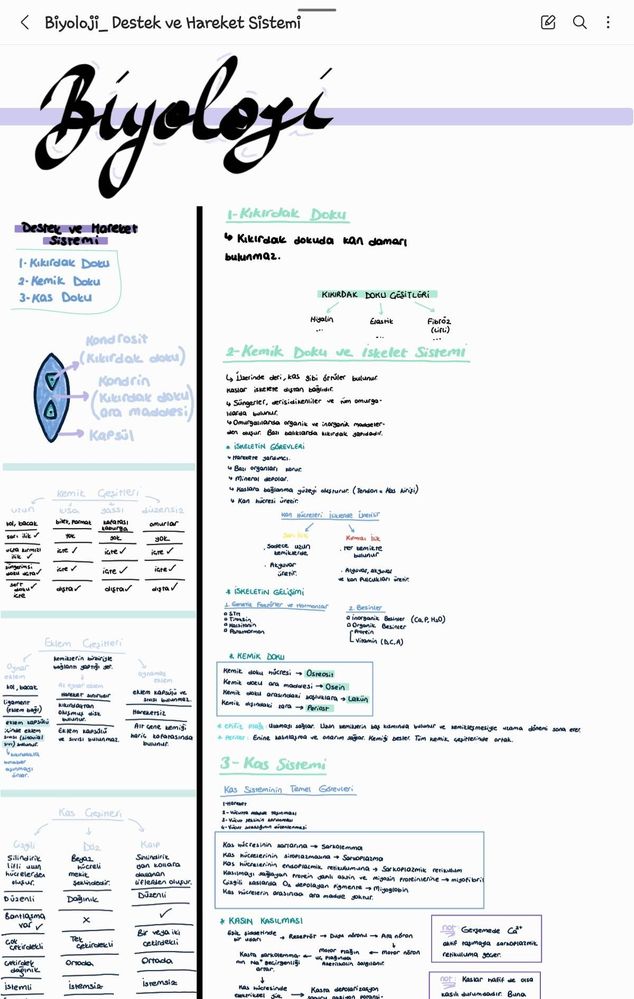 Biyoloji_ Destek ve Hareket Sistemi
Biyoloji
Destek ve Hareket
Sistemi
1-Kıkırdak Doku
2-Kemik Doku
3-Kas Doku
Kondrosit
(Kıkırdak doku)
Kondrin
(Kıkırdak doku
ara maddesi)
Kapsül
Kemik Çeşitleri
uzun kısa yassı düzensiz
kol, bacak
bilek, parmak
kafatası
kaburga
omurlar
sarı ilik ✓
yok
yok
yok
içte ✓
içte ✓
içte ✓
içte ✓
içte ✓
içte ✓
dışta ✓
dışta ✓
dışta ✓
Eklem Çeşitleri
kemiklerin birbiriyle
bağlantı yaptığı yer.
Oynar
eklem
Az oynar eklem
oynamaz
eklem
kol, bacak
Ligament
(eklem bağı)
eklem kapsülü
içinde eklem
sıvısı (sinovial
sıvı) bulunur.
Hareket sınırlıdır
Kıkırdaktan
oluşmuş disk
bulunur.
Eklem kapsülü
ve sıvısı bulunmaz.
eklem kapsülü ve
sıvısı bulunmaz.
Hareketsiz
Alt çene kemiği
hariç kafatasında
bulunur.
Kas Çeşitleri
Çizgili Düz Kalp
Silindirik
lifli uzun
hücrelerden
oluşur.
Beyaz
hücreli
mekik
şeklindedir.
Silindirik
dallanan
liflerden oluşur.
Düzenli
Dağınık
Düzenli
Bantlaşma
var ✓
×
✓
Çok
çekirdekli
Tek
çekirdekli
Bir veya iki
çekirdekli
çekirdek
dağınık
Ortada
Ortada
İstemli
İstemsiz
İstemsiz
1-Kıkırdak Doku
↳ Kıkırdak dokuda kan damarı
bulunmaz.
KIKIRDAK DOKU ÇEŞİTLERİ
Hiyalin
...
Elastik
...
Fibröz
(Lifli)
...
2-Kemik Doku ve İskelet Sistemi
↳ Üzerinde deri, kas gibi örtüler bulunur.
Kaslar iskelete dıştan bağlıdır.
↳ Süngerler, derisidikenliler ve tüm omurga-
lılarda bulunur.
↳ Omurgalılarda organik ve inorganik maddeler-
den oluşur. Bazı balıklarda kıkırdak yapıdadır.
* İSKELETİN GÖREVLERİ
↳ Harekete yardımcı.
↳ Bazı organları korur.
↳ Mineral depolar.
↳ Kaslara bağlanma yüzeyi oluşturur. (Tendon = Kas kirişi)
↳ Kan hücresi üretir.
Kan hücreleri iskelette üretilir
Sarı ilik
Kırmızı ilik
. Sadece uzun
kemiklerde
. Akyuvar
üretir.
. Her kemikte
bulunur
. Alyuvar, akyuvar
ve kan pulcukları üretir.
* İSKELETİN GELİŞİMİ
1. Genetik Faktörler ve Hormonlar
o STH
o Tiroksin
o Kalsitonin
o Parathormon
2. Besinler
o İnorganik Besinler (Ca, P, H₂O)
o Organik Besinler
Protein
Vitamin (D,C,A)
* KEMİK DOKU
Kemik doku hücresi → Osteosit
Kemik doku ara maddesi → Osein
Kemik doku arasındaki boşluklara → Lakün
Kemik dışındaki zara → Periost
* Periost: Enine kalınlaşma ve onarım sağlar. Kemiği besler. Tüm kemik çeşitlerinde ortak.
3- Kas Sistemi
Kas Sisteminin Temel Görevleri
1-Hareket
Kas hücresinin zarlarına → Sarkolemma
Kas hücrelerinin sitoplazmasına → Sarkoplazma
Kas hücrelerinin endoplazmik retikulumuna → Sarkoplazmik retikulum
Kasılmayı sağlayan protein yapılı aktin ve miyozin proteinlerine → miyofibril
Çizgili kaslarda O₂ depolayan pigmente → Miyoglobin
Kas hücrelerinin arasında ara madde yoktur.
* KASIN KASILMASI
bir uyarı → Reseptör → Duyu nöron → Ara nöron
Motor nöron
not: Gevşemede Ca²⁺
aktif taşımayla sarkoplazmik
retikuluma geçer.
not: Kaslar hafif de olsa